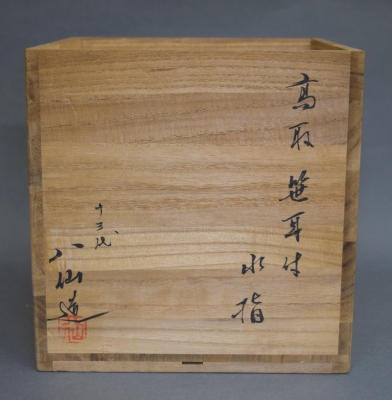 高取 笹耳付
水指
十三代
八仙造